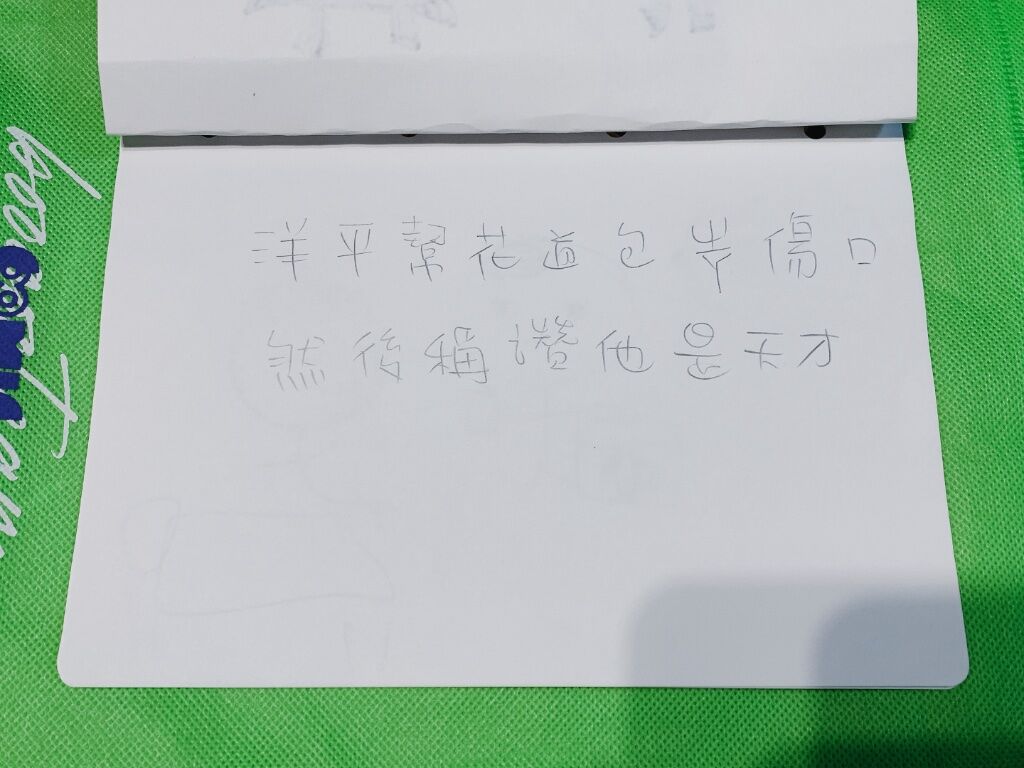 洋平幫花道包紮傷口
然後稱讚他是天才